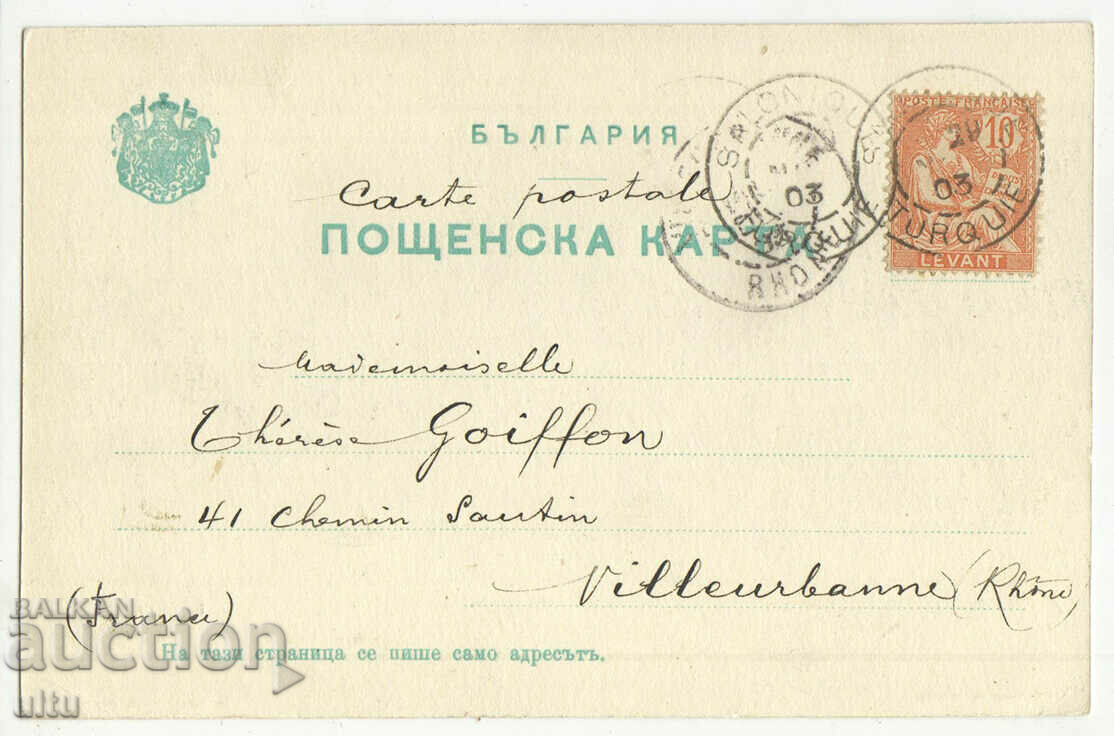 БЪЛГАРИЯ
Carte postale
ПОЩЕНСКА КАРТА
POSTE FRANÇAISE
10
LEVANT
SALONIQUE
03
TURQUIE
03
TURQUIE
RHONE
Mademoiselle
Thérèse Goiffon
41 Chemin Sautin
Villeurbanne (Rhône)
(France)
На тази страница се пише само адресътъ.
BALKAN
auction
ultu